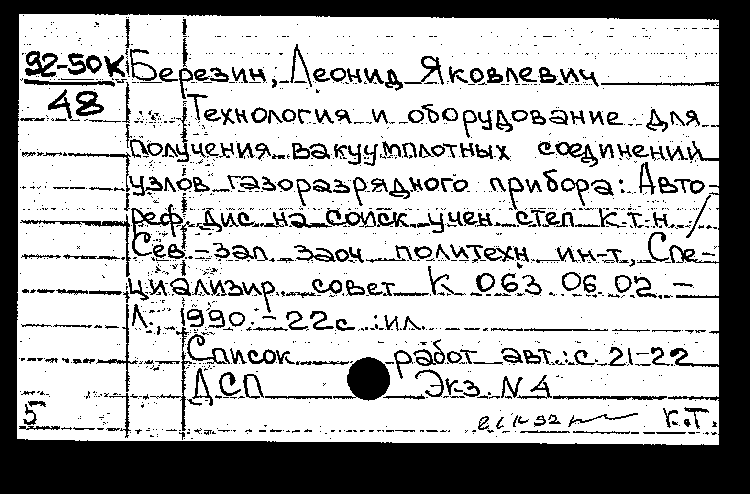 92-50К Березин, Леонид Яковлевич
48 Технология и оборудование для
получения вакуумплотных соединений
узлов газоразрядного прибора: Авто-
реф. дис на соиск учен степ к.т.н. /
Сев-зап. заоч политехн ин-т, Спе-
циализир. совет К 063.06.02. -
Л., 1990. - 22с :ил.
Список работ авт.: с. 21-22
ДСП Экз. N 4
5 К.Т.